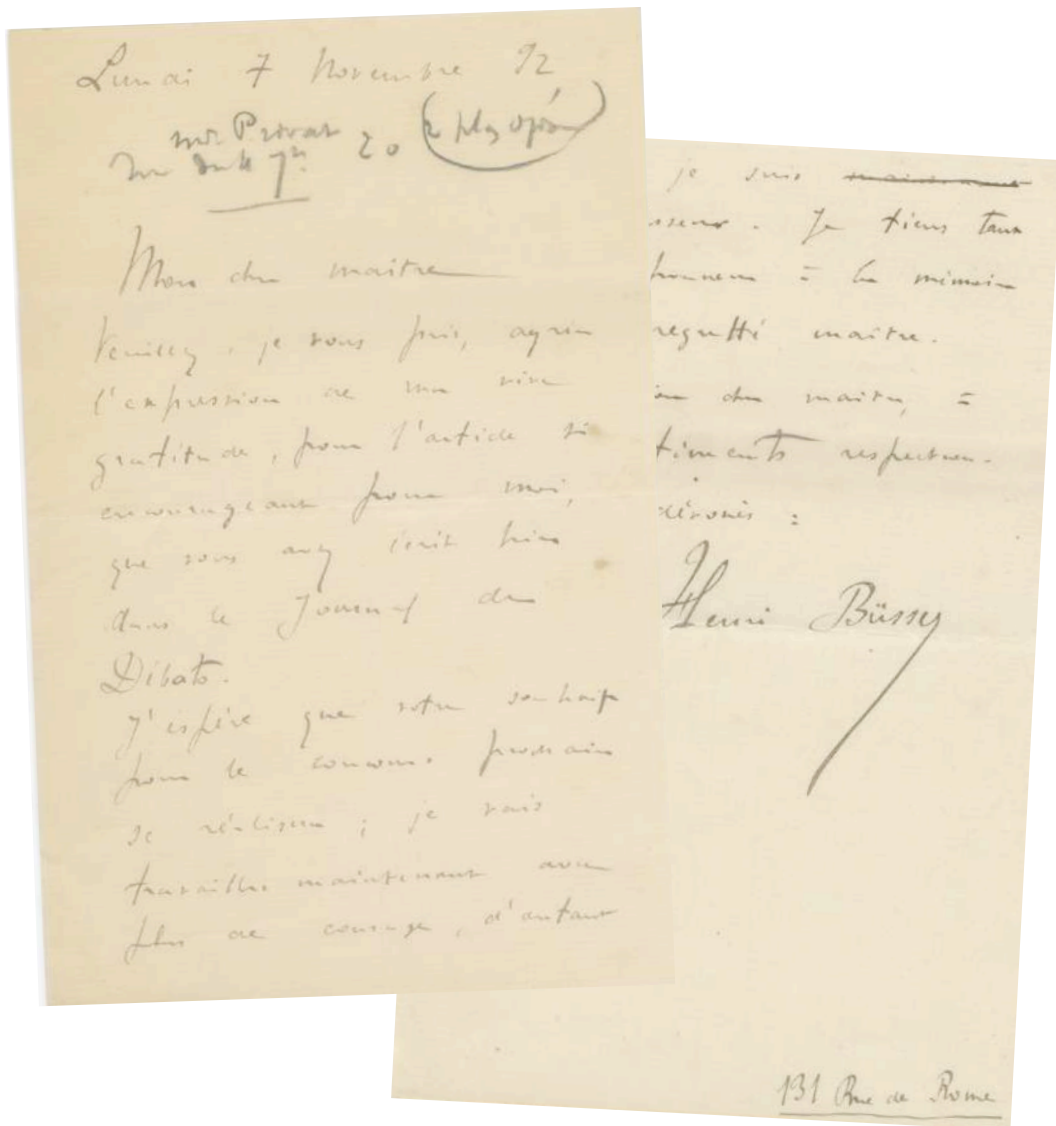 Lundi 7 Novembre 92
Mr Privat
20 (2 plas opéra)
Mon cher maître
Veuillez, je vous prie, agréer
l'expression de ma vive
gratitude, pour l'article si
encourageant pour moi,
que vous avez écrit hier
dans le Journal des
Débats.
J'espère que votre souhait
pour le concours prochain
se réalisera ; je vais
travailler maintenant avec
plus de courage, d'autant
je suis
sseur. Je tiens tant
honneur à la mémoire
regretté maître.
on cher maître, à
timents respectueu-
dévoués :
Henri Büsser
131 Rue de Rome